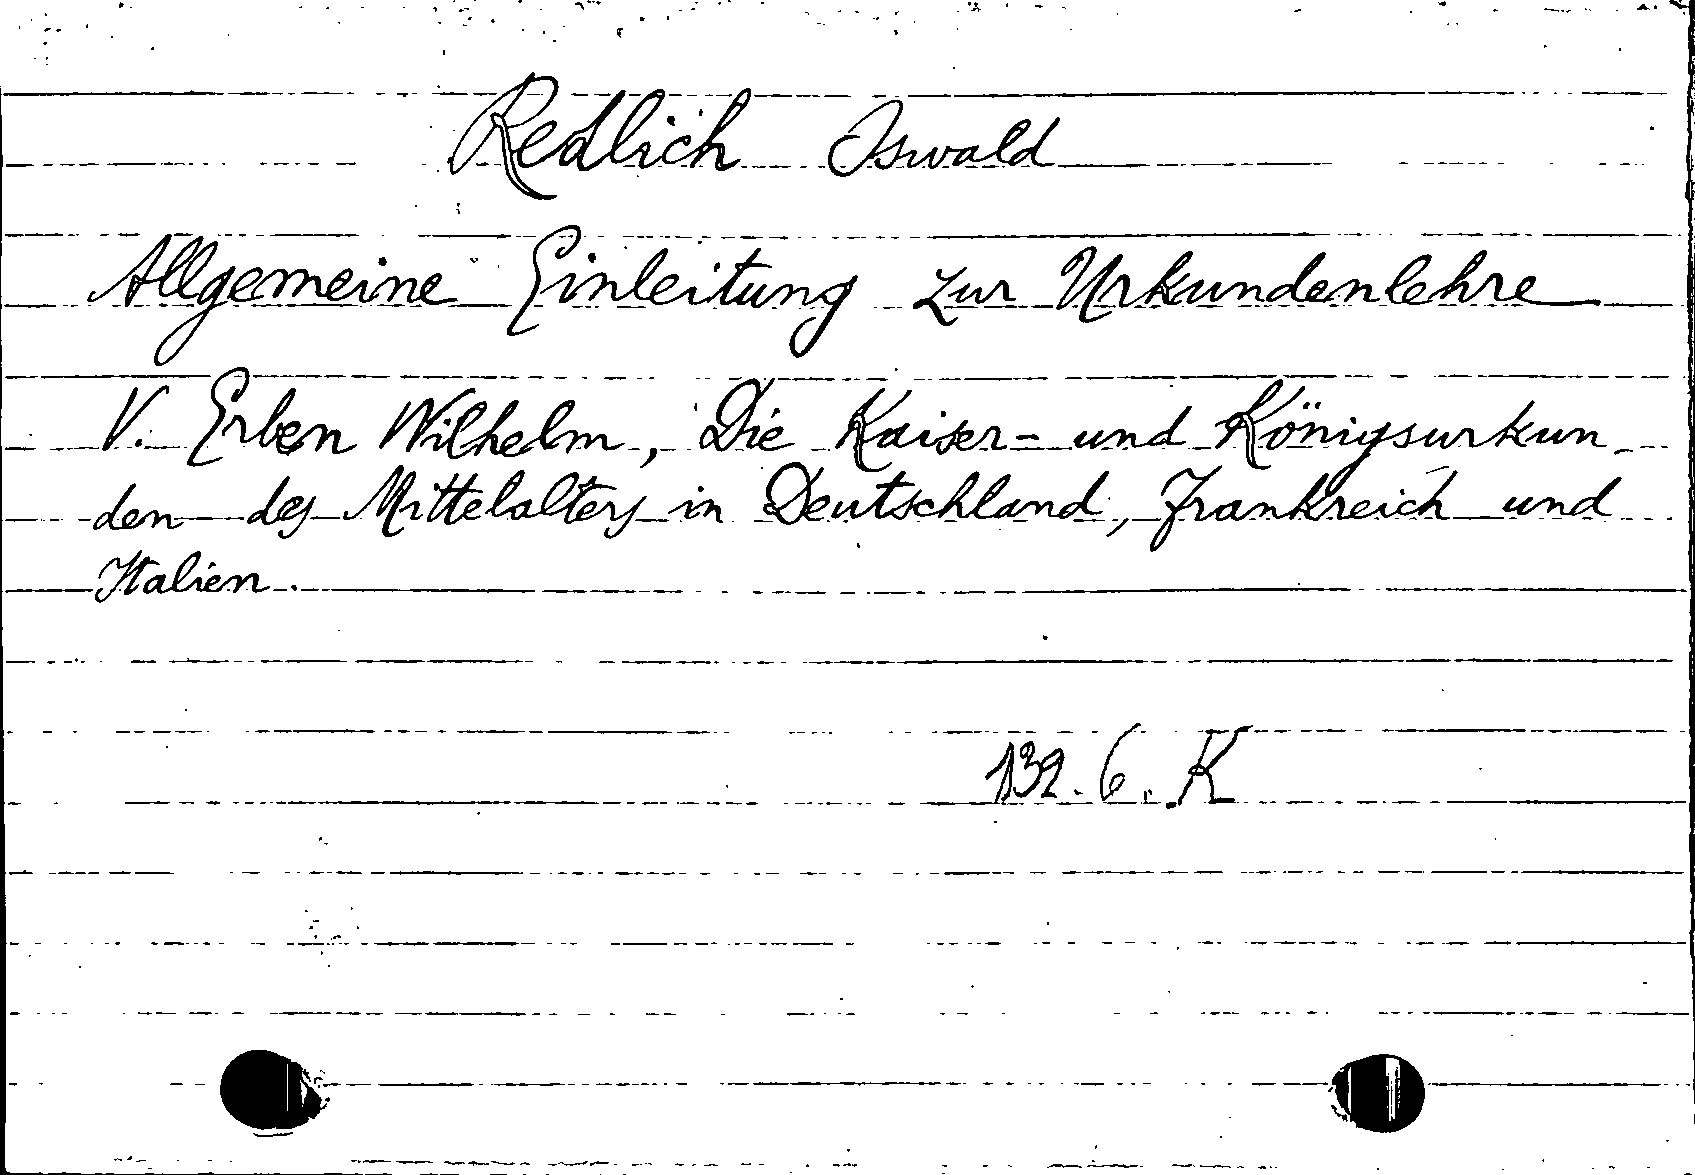 Redlich Oswald
Allgemeine Einleitung zur Urkundenlehre
V. Erben Wilhelm, Die Kaiser- und Königsurkun-
den des Mittelalters in Deutschland, Frankreich und
Italien.
132.6.K